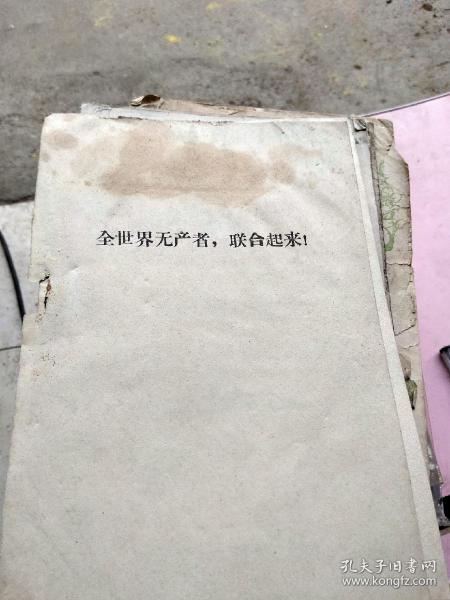 全世界无产者，联合起来！
孔夫子旧书网
www.kongfz.com